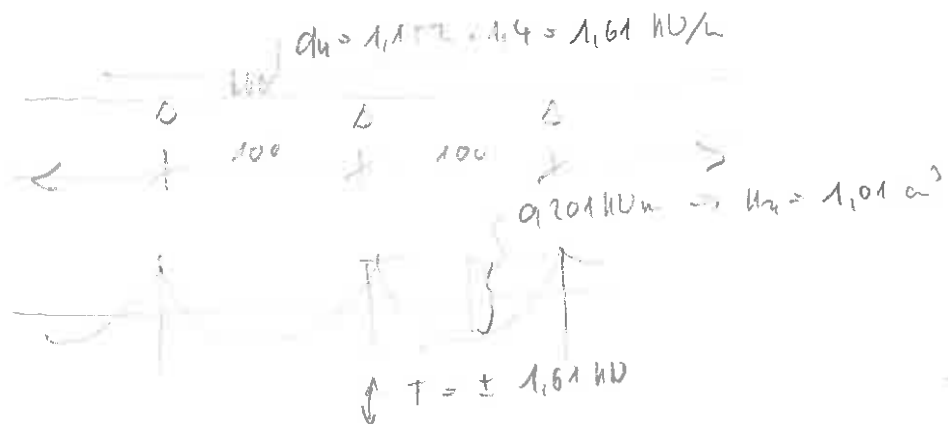 = 1,1 · 1,4 = 1,61 kN/m
100 100
0,201 kNm → = 1,01 cm³
T = ± 1,61 kN